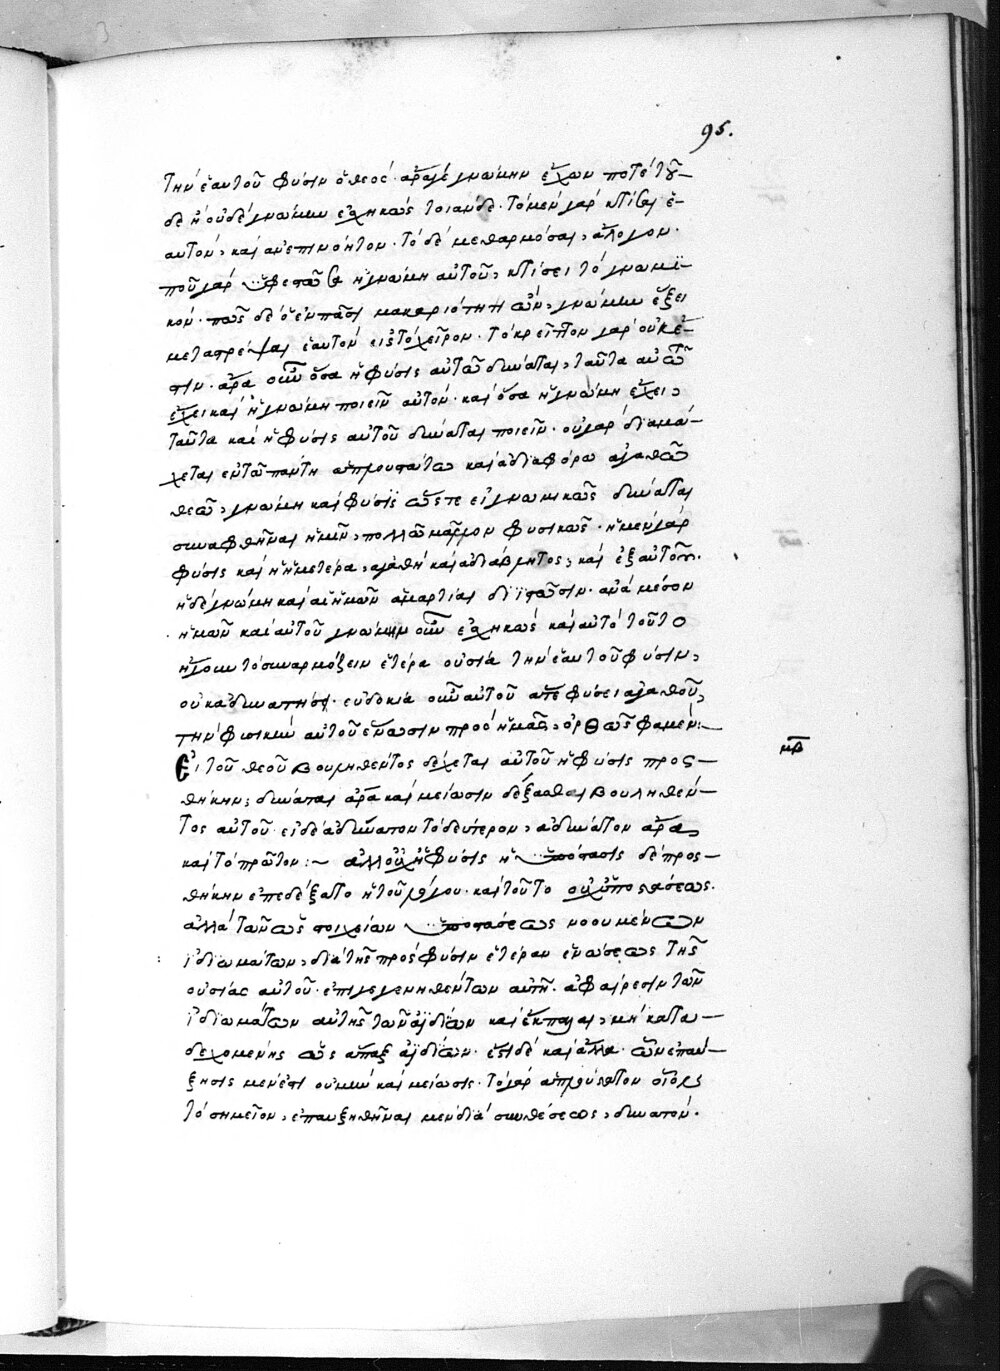 95.
τὴν ἑαυτοῦ φύσιν ὁ θεός· ἆρα γε γνώμην ἔχων ποτὲ τοῦ-
δε ἢ οὐδὲ γνώμην ἐσχηκὼς τοιάνδε· τὸ μὲν γὰρ κτίσαι ἑ-
αυτὸν, καὶ ἀνεπινόητον· τὸ δὲ μεθαρμόσαι, ἄλογον·
ποῦ γὰρ ἡ γνώμη αὐτοῦ, κτίσει τὸ γνωμι-
κόν· πῶς δὲ ὁ ἐν πάσῃ μακαριότητι ὢν, γνώμην ἕξει
μετατρέψαι ἑαυτὸν εἰς τὸ χεῖρον· τὸ κρεῖττον γὰρ οὐκ ἔ-
στιν· ἆρα οὖν ὅσα ἡ φύσις αὐτοῦ δύναται, ταῦτα
ἔχει καὶ ἡ γνώμη ποιεῖν αὐτόν· καὶ ὅσα ἡ γνώμη ἔχει,
ταῦτα καὶ ἡ φύσις αὐτοῦ δύναται ποιεῖν· οὐ γὰρ διαμά-
χεται ἐν τῷ πάντη καὶ ἀδιαφόρω ἀγαθῷ
θεῷ, γνώμη καὶ φύσις ὥστε εἰ γνωμικῶς δύναται
συναφθῆναι ἡμῖν, πολλῷ μᾶλλον φυσικῶς· ἡ μὲν γὰρ
φύσις καὶ ἡ ἡμετέρα, ἀγαθὴ καὶ ἀδιάβλητος, καὶ ἐξ αὐτοῦ·
ἡ δὲ γνώμη καὶ αἱ ἡμῶν ἁμαρτίαι διϊστῶσιν· ἀνὰ μέσον
ἡμῶν καὶ αὐτοῦ γνώμην οὖν ἐσχηκὼς καὶ αὐτὸ τοῦτο
ἤγουν τὸ συναρμόξειν ἑτέρα οὐσία τὴν ἑαυτοῦ φύσιν,
οὐκ ἀδυνατήσει· εὐδοκία οὖν αὐτοῦ ἅτε φύσει ἀγαθοῦ,
τὴν φυσικὴν αὐτοῦ ἕνωσιν πρὸς ἡμᾶς, ὀρθῶς φαμέν:—
Εἰ τοῦ θεοῦ βουληθέντος δέχεται αὐτοῦ ἡ φύσις προσ-
θήκην; δύναται ἄρα καὶ μείωσιν δέξασθαι βουληθέν-
τος αὐτοῦ· εἰ δὲ ἀδύνατον τὸ δεύτερον, ἀδύνατον ἄρα,
καὶ τὸ πρῶτον:~ ἀλλ' οὐχ ἡ φύσις ἡ ὑπόστασις δὲ προσ-
θήκην ἐπεδέξατο ἡ τοῦ λόγου· καὶ τοῦτο οὐχ ὑποστάσεως·
ἀλλὰ τῶν ὡς στοιχείων ὑποστάσεως νοουμένων
ἰδιωμάτων, διὰ τῆς πρὸς φύσιν ἑτέραν ἑνώσεως τῆς
οὐσίας αὐτοῦ· ἐπιγεγενηθέντων αὐτῇ· ἀφαίρεσιν τῶν
ἰδιωμάτων αὐτῆς τῶν ἀϊδίων καὶ μὴ κατα-
δεχομένης ὡς ἅπαξ ἀϊδίων· ἔστι δὲ καὶ ἄλλα· ὧν ἐπαύ-
ξησις μὲν ἔστι οὐ μὴν καὶ μείωσις· τὸ γὰρ
τὸ σημεῖον, ἐπαυξηθῆναι μὲν διὰ συνθέσεως, δυνατόν·